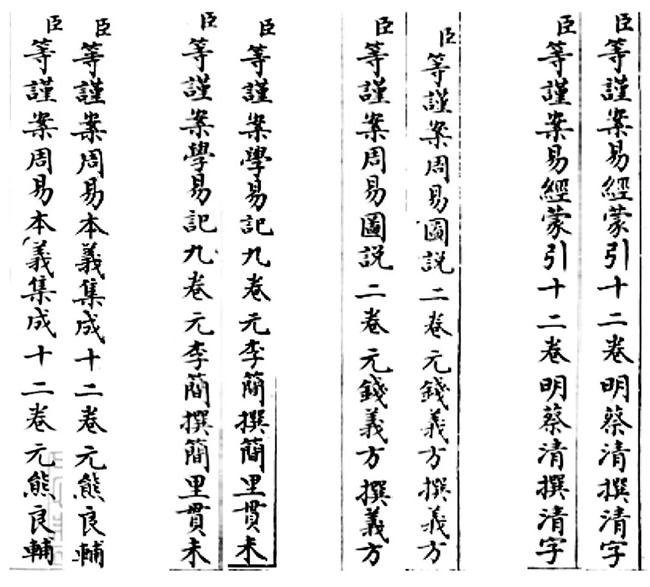 臣等謹案易經蒙引十二卷明蔡清撰清字
臣等謹案易經蒙引十二卷明蔡清撰清字
臣等謹案周易圖説二卷元錢義方撰義方
臣等謹案周易圖説二卷元錢義方撰義方
臣等謹案學易記九卷元李簡撰簡里貫未
臣等謹案學易記九卷元李簡撰簡里貫未
臣等謹案周易本義集成十二卷元熊良輔
臣等謹案周易本義集成十二卷元熊良輔